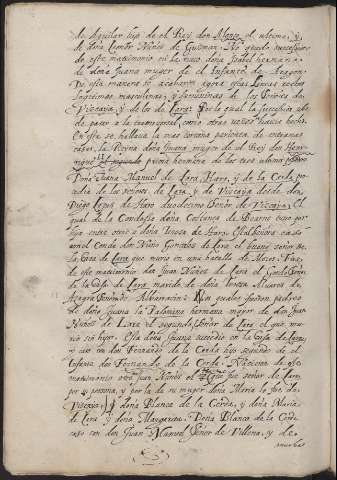 de Aguilar hijo de el Rey don Alonso el ultimo, y
de doña Leonor Nuñez de Guzman. No quedo succession
de este matrimonio ni la tuvo doña Isabel hermana
de doña Juana muger de el Infante de Aragon.
De esta manera se acabaron aquellas Lineas rectas
legitimas masculinas, y femininas de los Señores de
Vizcaya, y de los de Lara: Por lo qual la succession ubo
de passar a la transversal, como otras vezes havia hecho.
En esta se hallava la mas cercana parienta de entrambas
casas, la Reyna doña Juana muger de el Rey don Henrrique
el segundo prima hermana de los tres ultimos
Doña Juana Manuel de Lara, Haro, y de la Cerda, procedia
de los señores de Lara, y de Vizcaya desde don
Diego Lopez de Haro duodecimo Señor de Vizcaya, el
qual de la Condessa doña Costança de Bearne tuvo por
hija entre otros a doña Teresa de Haro. Esta Señora casso
con el Conde don Nuño Gonzales de Lara el bueno señor de
la Casa de Lara que murio en una batalla de Moros. Fue
de este matrimonio don Juan Nuñez de Lara el Gordo Señor
de la Casa de Lara marido de doña Teresa Alvarez de
Azagra Señora de Albarracin: Los quales fueron padres
de doña Juana la Palomina hermana mayor de don Juan
Nuñez de Lara el segundo, Señor de Lara el que murio
sin hijos. Esta doña Juana succedio en la Casa de Lara,
y caso con don Fernando de la Cerda hijo segundo de el
Infante don Fernando de la Cerda. Nacieron de este
matrimonio don Juan Nuñez el señor de Lara
por su persona, y por la de su muger doña Maria lo fue de
Vizcaya, y doña Blanca de la Cerda, y doña Maria
de Lara y doña Margarita. Doña Blanca de la Cerda
caso con don Juan Manuel Señor de Villena, y de